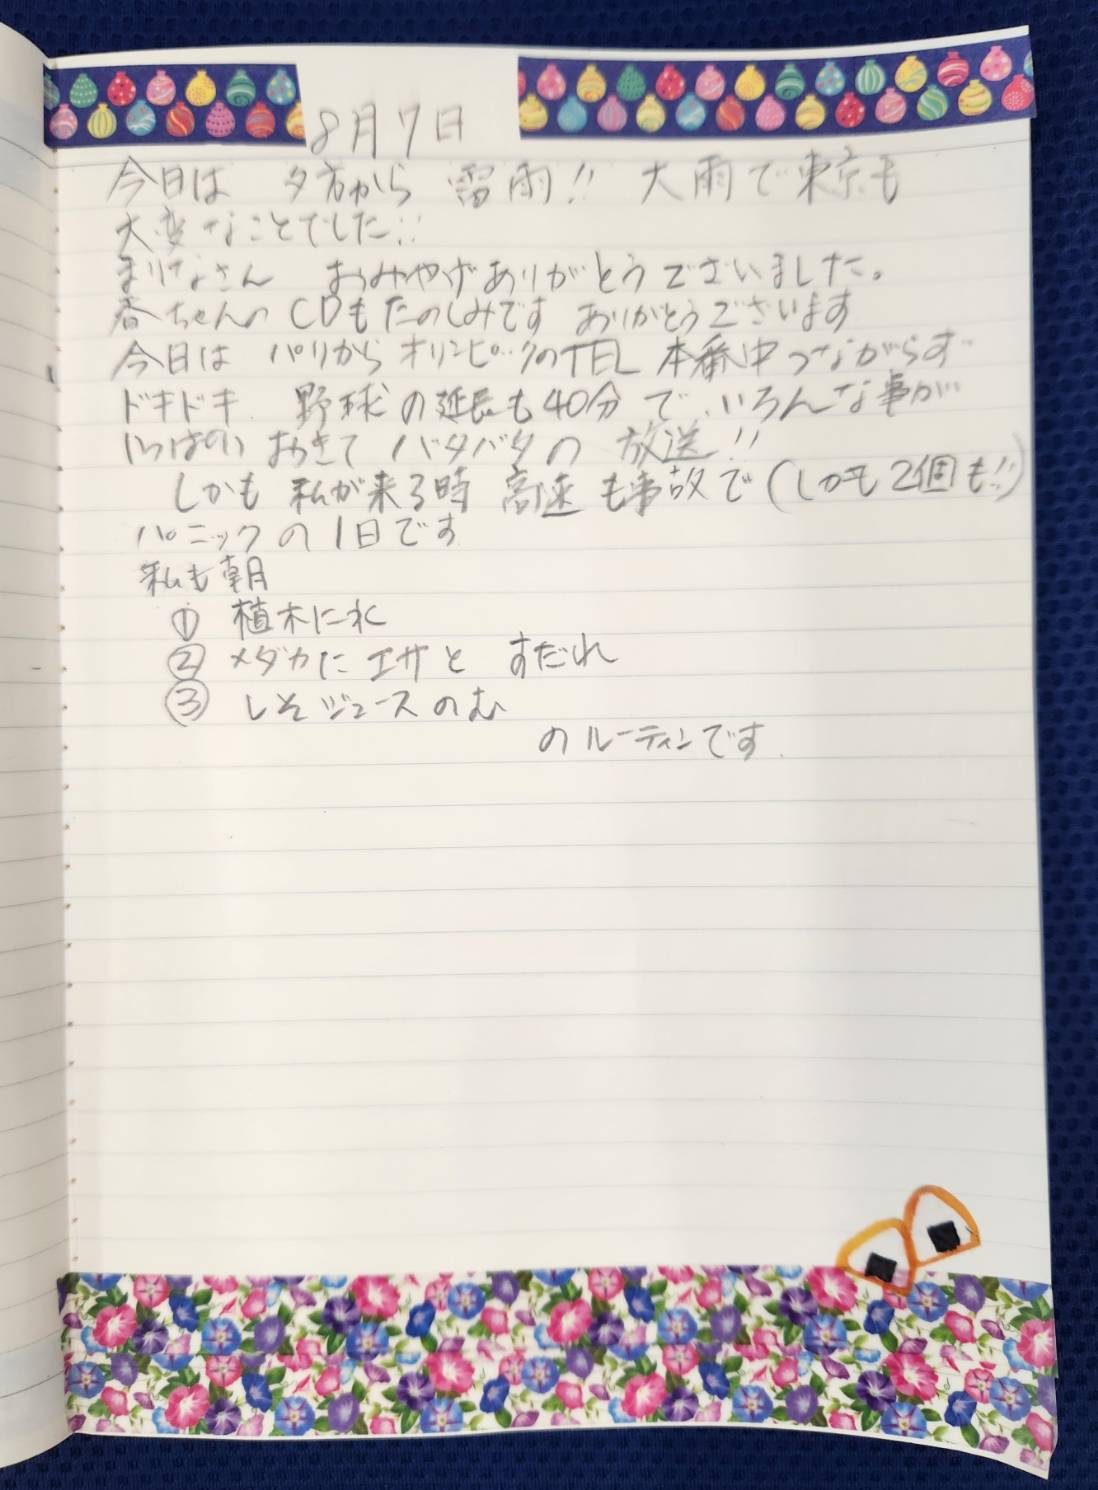 8月7日
今日は 夕方から 雷雨!! 大雨で東京も
大変なことでした!!
まりなさん おみやげありがとうございました。
香ちゃんの CDもたのしみです ありがとうございます
今日は パリからオリンピックのTEL 本番中 つながらず
ドキドキ 野球の延長も40分で いろんな事が
いっぱい おきて バタバタの 放送!!
しかも 私が来る時 高速も事故で(しかも2個も!!)
パニックの1日です
私も朝
① 植木に水
② メダカにエサと すだれ
③ しそジュースのむ
のルーティンです.